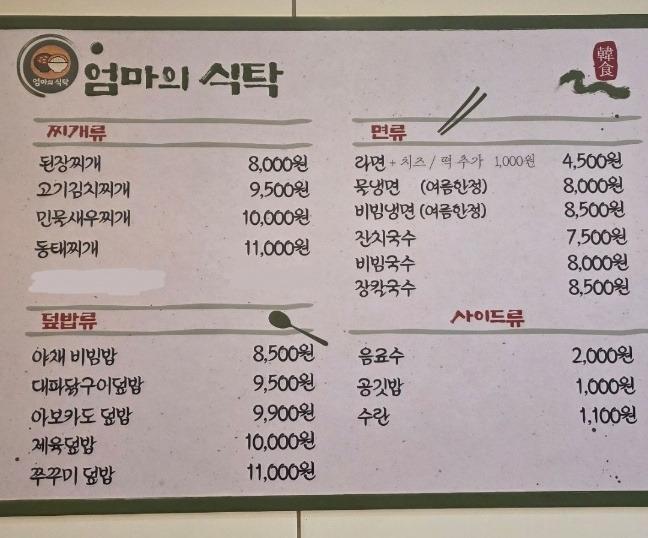 엄마의 식탁
엄마의 식탁
韓食
찌개류
된장찌개 8,000원
고기김치찌개 9,500원
민물새우찌개 10,000원
동태찌개 11,000원
면류
라면 + 치즈 / 떡 추가 1,000원 4,500원
물냉면 (여름한정) 8,000원
비빔냉면 (여름한정) 8,500원
잔치국수 7,500원
비빔국수 8,000원
장칼국수 8,500원
덮밥류
야채 비빔밥 8,500원
대파닭구이덮밥 9,500원
아보카도 덮밥 9,900원
제육덮밥 10,000원
쭈꾸미 덮밥 11,000원
사이드류
음료수 2,000원
공깃밥 1,000원
수란 1,100원